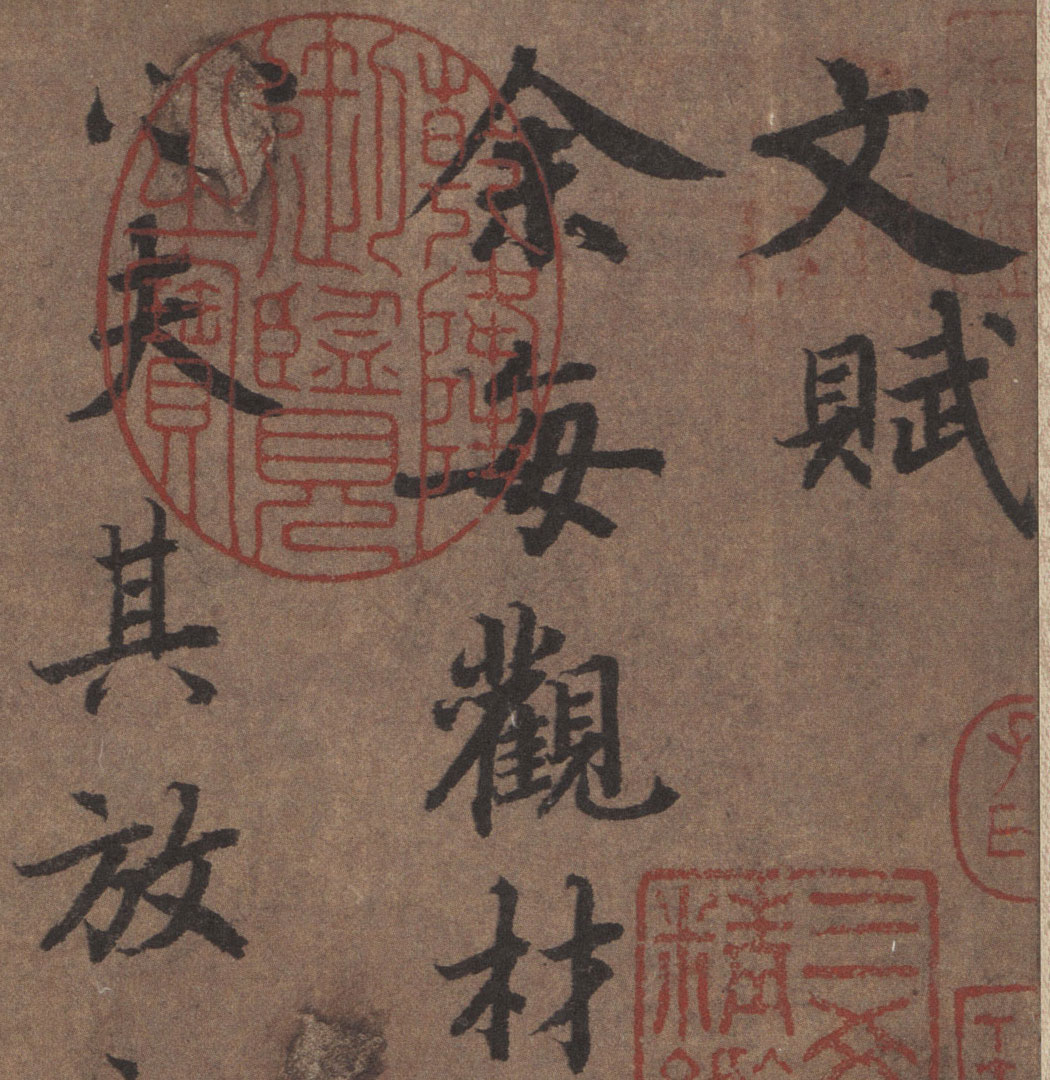 文賦
余每觀材
心夫其放
乾隆
御覽
之寶
三希
精